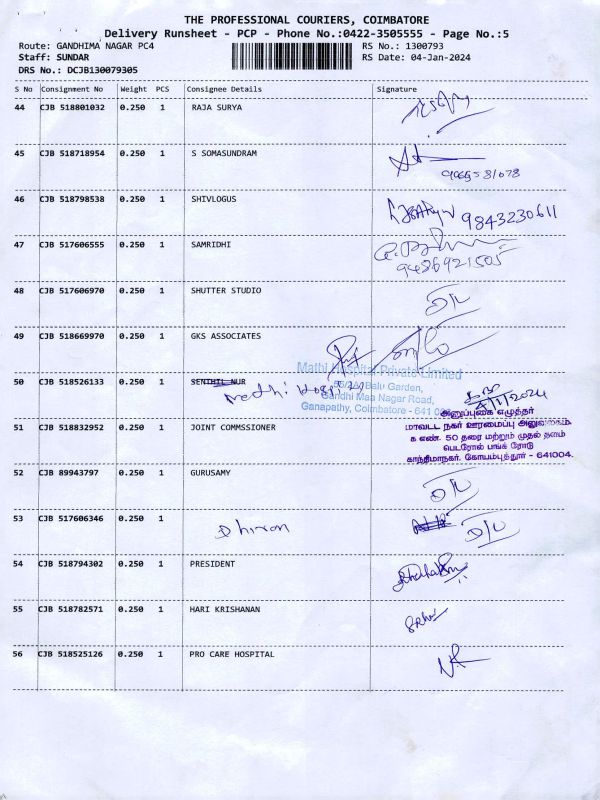 THE PROFESSIONAL COURIERS, COIMBATORE
Delivery Runsheet - PCP - Phone No.:0422-3505555 - Page No.:5
Route: GANDHIMA NAGAR PC4 RS No.: 1300793
Staff: SUNDAR RS Date: 04-Jan-2024
DRS No.: DCJB130079305
S No Consignment No Weight PCS Consignee Details Signature
44 CJB 518801032 0.250 1 RAJA SURYA
45 CJB 518718954 0.250 1 S SOMASUNDRAM
46 CJB 518798538 0.250 1 SHIVLOGUS
9843230611
47 CJB 517606555 0.250 1 SAMRIDHI
9486921505
48 CJB 517606970 0.250 1 SHUTTER STUDIO
D/L
49 CJB 518669970 0.250 1 GKS ASSOCIATES
Mathi Hospital Private Limited
50 CJB 518526133 0.250 1 SENTHIL NUR
Balu Garden,
Gandhi Maa Nagar Road,
Ganapathy, Coimbatore - 641
4/1/2024
அனுப்புகை எழுத்தர்
51 CJB 518832952 0.250 1 JOINT COMMSSIONER
மாவட்ட நகர் ஊரமைப்பு அலுவலகம்,
க எண். 50 தரை மற்றும் முதல் தளம்
பெட்ரோல் பங்க் ரோடு
காந்திமாநகர், கோயம்புத்தூர் - 641004.
52 CJB 89943797 0.250 1 GURUSAMY
D/L
53 CJB 517606346 0.250 1
Dhiron D/L
54 CJB 518794302 0.250 1 PRESIDENT
55 CJB 518782571 0.250 1 HARI KRISHANAN
56 CJB 518525126 0.250 1 PRO CARE HOSPITAL